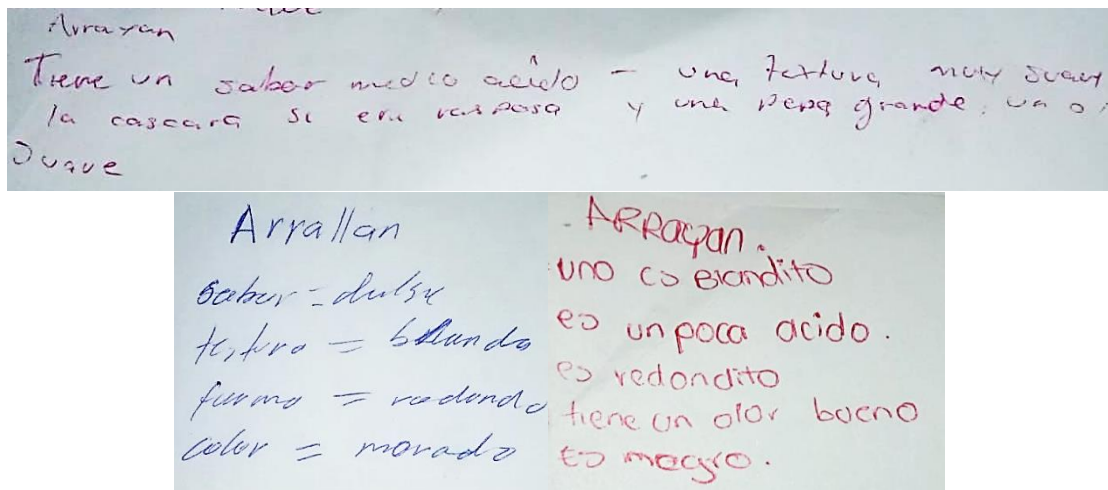 Arrayan
Tiene un sabor medio acido – una textura muy suav
la cascara si era rasposa y una pepa grande. un o
Suave
Arrallan
sabor = dulse
textura = blanda
forma = redondo
color = morado
. ARRAyan.
uno es Blandito
es un poca acido.
es redondito
tiene un olor bueno
es negro.